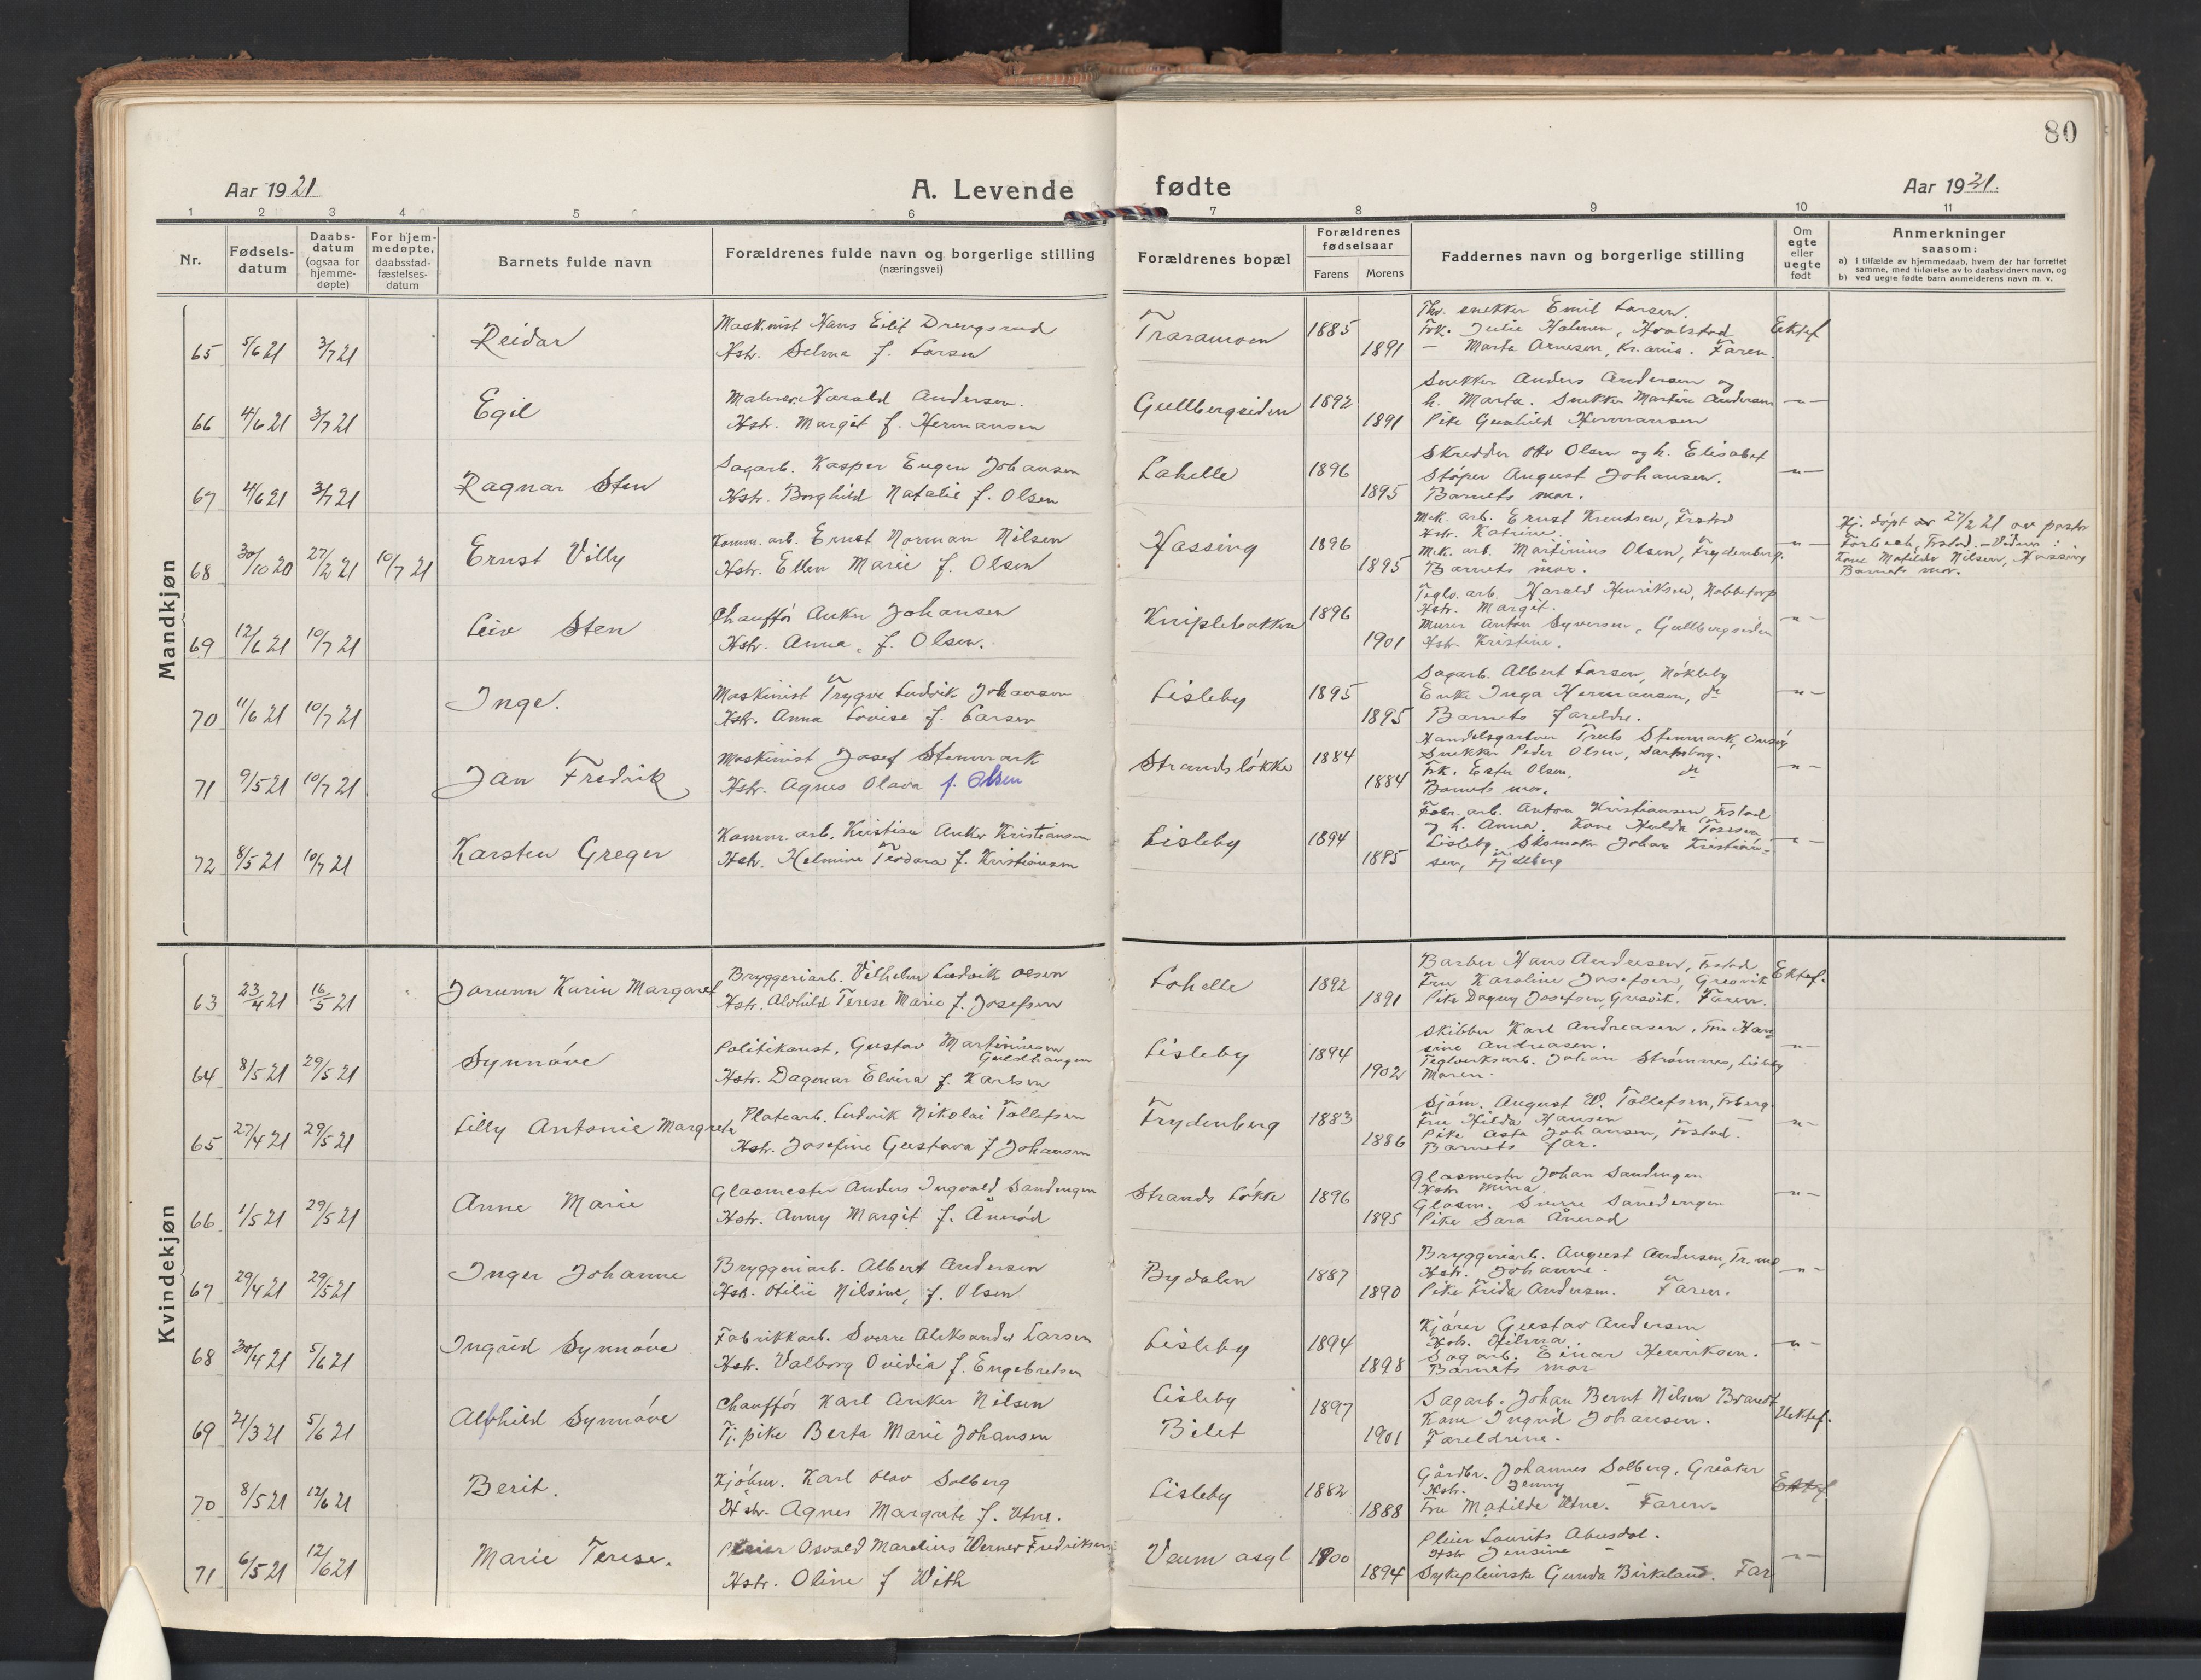 80
Aar 1921
A. Levende
fødte
Aar 1921.
1 2 3 4 5 6 7 8 9 10 11
Nr.
Fødsels-
datum
Daabs-
datum
(ogsaa for
hjemme-
døpte)
For hjem-
medøpte,
daabsstad-
fæstelses-
datum
Barnets fulde navn
Forældrenes fulde navn og borgerlige stilling
(næringsvei)
Forældrenes bopæl
Forældrenes
fødselsaar
Farens Morens
Faddernes navn og borgerlige stilling
Om
egte
eller
uegte
født
Anmerkninger
saasom:
a) I tilfælde av hjemmedaab, hvem der har forrettet
samme, med tilføielse av to daabsvidners navn, og
b) ved uegte fødte barn anmelderens navn m. v.
Mandkjøn
65 5/6 21 3/7 21 Reidar
Maskinist Hans Eilif Drengsrud
Hstr. Selma f. Larsen
Traramoen 1885 1891
snekker Emil Larsen.
Frk. Julie Holmen, Hvalstad
— Marta Arnesen, Kr.ania. Faren.
Ektef
66 4/6 21 3/7 21 Egil
Maler Harald Andersen.
Hstr. Margit f. Hermansen
Gullbergsiden 1892 1891
Snekker Anders Andersen og
h. Marta. Snekker Martin Andersen
Pike Gunhild Hermansen
—"—
67 4/6 21 3/7 21 Ragnar Sten
Sagarb. Kasper Eugen Johansen
Hstr. Borghild Natalie f. Olsen
Lahelle 1896 1895
Skredder Otto Olsen og h. Elisabet
Støper August Johansen.
Barnets mor.
—"—
68 30/10 20 27/2 21 10/7 21 Ernst Villy
Komm. arb. Ernst Norman Nilsen
Hstr. Ellen Marie f. Olsen
Hassing 1896 1895
Mek. arb. Ernst Knutsen, Frstad
Hstr. Katrine.
Mek. arb. Martinius Olsen, Frydenberg.
Barnets mor.
—"—
Hj. døpt 27/2 21 av pastor
Frstad. —
Kone Matilde Nilsen, Hassing
Barnets mor.
69 12/6 21 10/7 21 Leiv Sten
Chauffør Anker Johansen
Hstr. Anna, f. Olsen.
Kniplebakken 1896 1901
Teglv. arb. Harald Henriksen, Nabbetorp
Hstr. Margit.
Murer Anton Syversen, Gullbergsiden
Hstr. Kristine.
—"—
70 11/6 21 10/7 21 Inge.
Maskinist Trygve Ludvik Johansen
Hstr. Anna Lovise f. Larsen
Lisleby 1895 1895
Sagarb. Albert Larsen, Nøkleby
Enke Inga Hermansen, do
Barnets foreldre.
—"—
71 9/5 21 10/7 21 Jan Fredrik
Maskinist Josef Stenmark
Hstr. Agnes Olava f. Olsen
Strandsløkke 1884 1884
Handelsgartner Truls Stenmark, Onsøy
Snekker Peder Olsen, Sarpsborg.
Frk. Ester Olsen, do
Barnets mor.
—"—
72 8/5 21 10/7 21 Karsten Greger
Komm. arb. Kristian Anker Kristiansen
Hstr. Helmine Teodora f. Kristiansen
Lisleby 1894 1895
Fabr. arb. Anton Kristiansen, Frstad
og h. Anna. Kone Hulda
Lisleby. Skomaker Johan Kristian-
sen, Fjellberg
—"—
Kvindekjøn
63 23/4 21 16/5 21 Jorunn Karin Margaret
Bryggeriarb. Vilhelm Ludvik Olsen
Hstr. Alvhild Terese Marie f. Josefsen
Lahelle 1892 1891
Barber Hans Andresen, Frstad
Fru Karoline Josefsen, Gresvik
Pike Dagny Josefsen, Gresvik. Faren.
Ektef.
64 8/5 21 29/5 21 Synnøve
Politikonst. Gustav Martiniussen
Guldhaugen
Hstr. Dagmar Elvira f. Karlsen
Lisleby 1894 1902
Skibber Karl Andreasen. Fru Han
sine Andreasen.
Teglverksarb. Johan Strømnes, Lisleby
Moren.
—"—
65 27/4 21 29/5 21 Lilly Antonie Margrete
Platearb. Ludvik Nikolai Tollefsen
Hstr. Josefine Gustava f Johansen
Frydenberg 1883 1886
Sjøm. August W. Tollefsen, Frberg.
Fru Hilda Hansen —
Pike Asta Johansen, Frstad.
Barnets far.
—"—
66 1/5 21 29/5 21 Anne Marie
Glasmester Anders Ingvald Sandengen
Hstr. Anny Margit f. Ånerød
Strands Løkke 1896 1895
Glasmester Johan Sandengen
Hstr. Mina.
Glasm. Sverre Sandengen
Pike Sara Ånerød
—"—
67 29/4 21 29/5 21 Inger Johanne
Bryggeriarb. Albert Andersen
Hstr. Otilie Nilsine, f. Olsen
Bydalen 1887 1890
Bryggeriarb. August Andersen,
Hstr. Johanne.
Pike Frida Andersen. Faren.
—"—
68 30/4 21 5/6 21 Ingrid Synnøve
Fabrikkarb. Sverre Aleksander Larsen
Hstr. Valborg Ovidia f. Engebretsen
Lisleby 1894 1898
Kjører Gustav Andersen
Hstr. Hilma.
Sagarb. Einar Henriksen.
Barnets mor
—"—
69 21/3 21 5/6 21 Alfhild Synnøve
Chauffør Karl Anker Nilsen
Tj. pike Berta Marie Johansen
Lisleby
Bilet
1897 1901
Sagarb. Johan Bernt Nilsen Brandt
Kone Ingrid Johansen.
Foreldrene.
Uektef.
70 8/5 21 12/6 21 Berit.
Kjøbm. Karl Olav Solberg
Hstr. Agnes Margrete f. Utne.
Lisleby 1882 1888
Gårdbr. Johannes Solberg, Gråter
Hstr. Jenny —
Fru Matilde Utne. Faren.
Ektef
71 6/5 21 12/6 21 Marie Terese.
Pleier Osvald Marelius Werner Fredriksen
Hstr. Oline f With
Veum asyl 1900 1894
Pleier Laurits Abusdal.
Hstr Jensine —
Sykepleierske Gunda Birkeland. Far
—"—